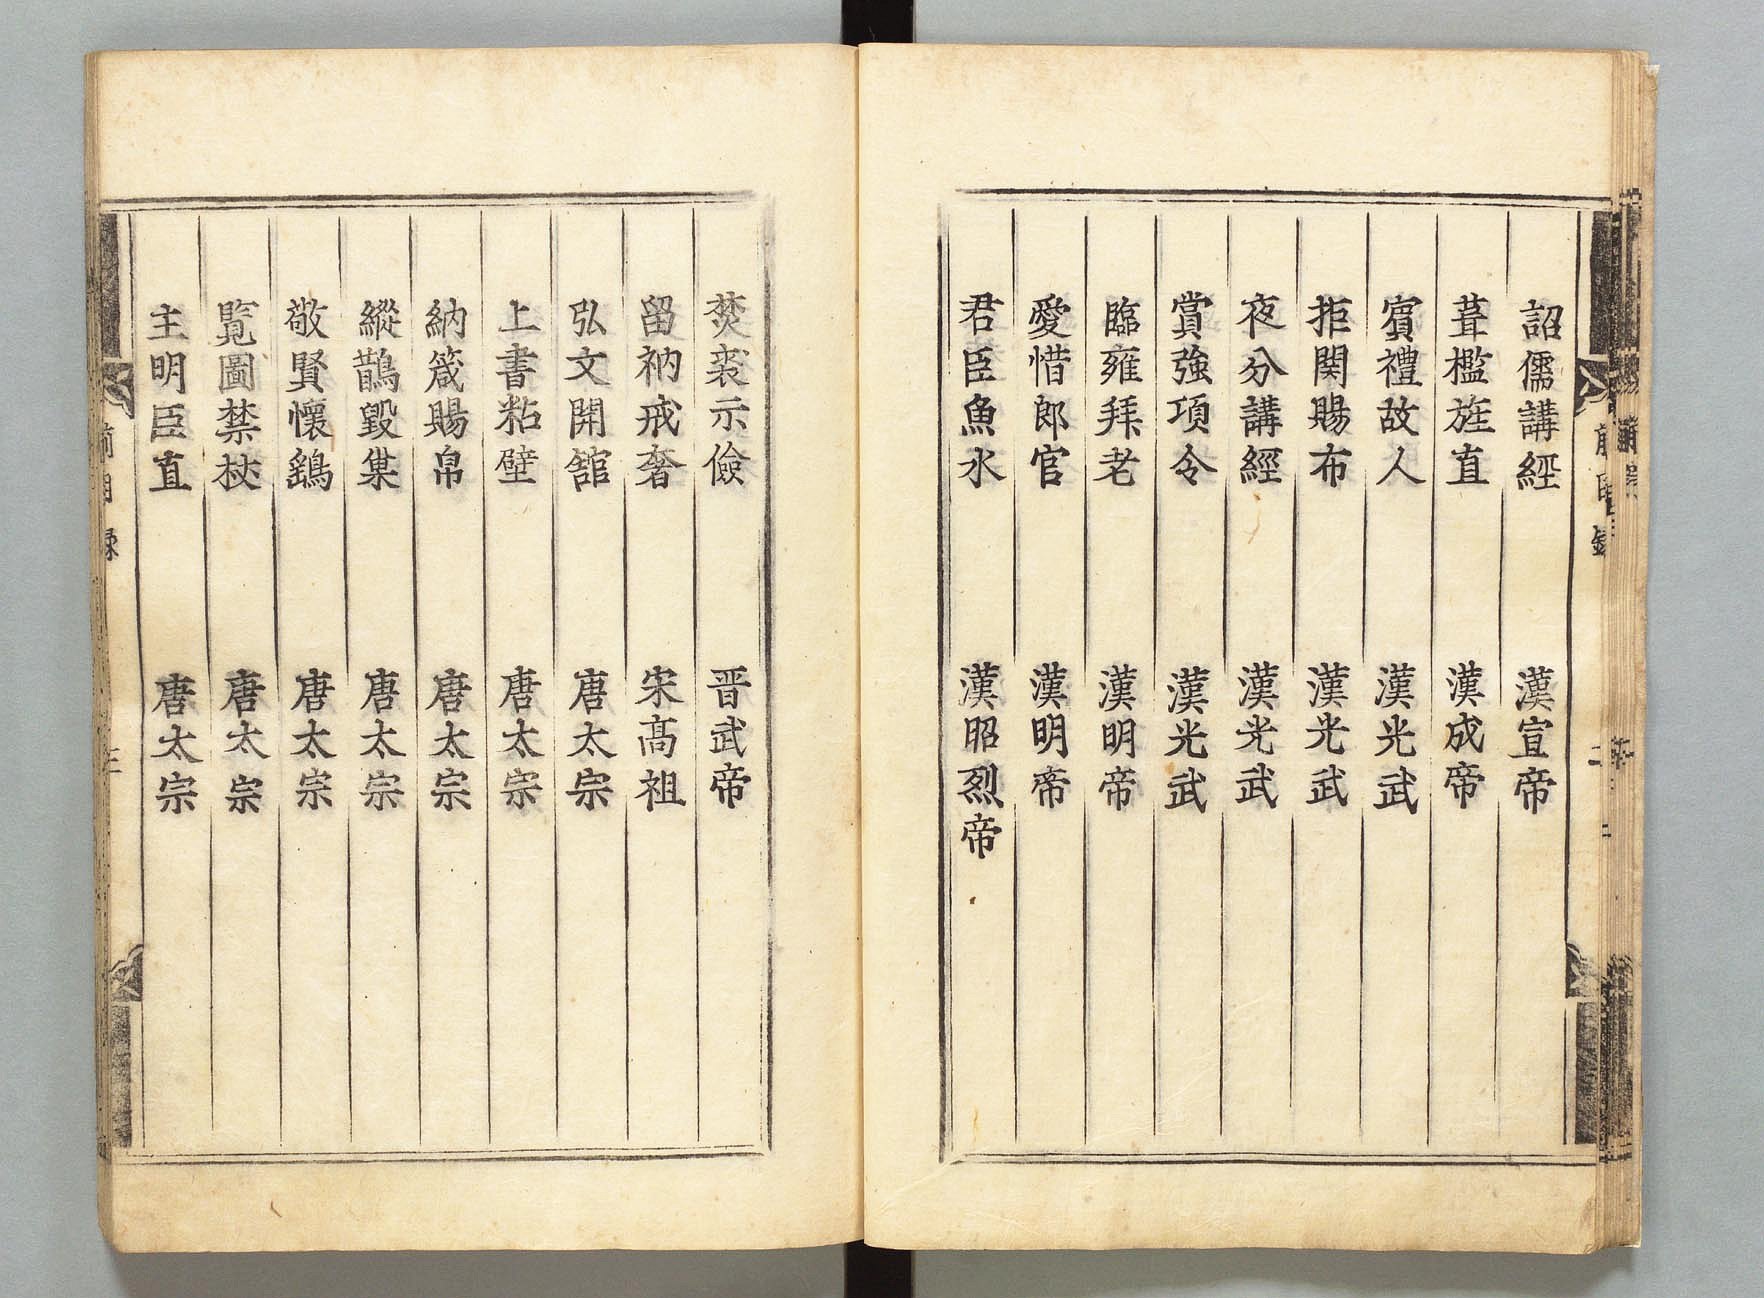 詔儒講經 漢宣帝
葺檻旌直 漢成帝
賓禮故人 漢光武
拒関賜布 漢光武
夜分講經 漢光武
賞強項令 漢光武
臨雍拜老 漢明帝
愛惜郎官 漢明帝
君臣魚水 漢昭烈帝
焚裘示儉 晋武帝
留衲戒奢 宋高祖
弘文開舘 唐太宗
上書粘壁 唐太宗
納箴賜帛 唐太宗
縱鵲毀巢 唐太宗
敬賢懷鷂 唐太宗
覧圖禁杖 唐太宗
主明臣直 唐太宗